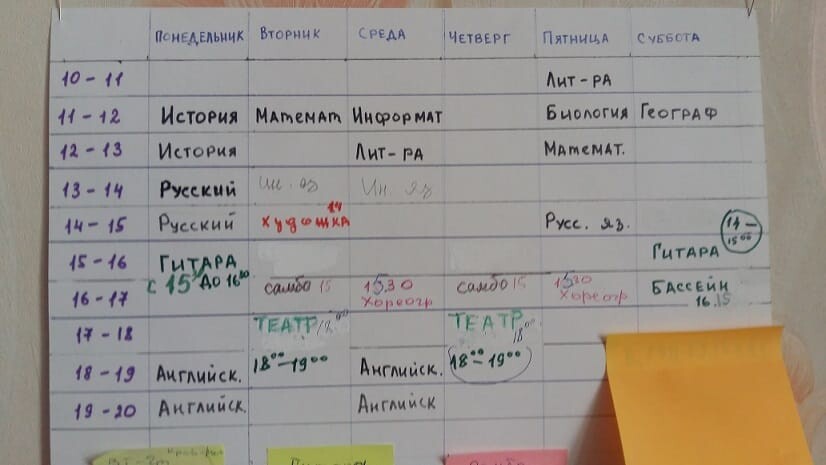 ПОНЕДЕЛЬНИК ВТОРНИК СРЕДА ЧЕТВЕРГ ПЯТНИЦА СУББОТА
10 - 11 Лит-ра
11 - 12 История Математ Информат Биология Географ
12 - 13 История Лит-ра Математ.
13 - 14 Русский Ин. яз Ин. яз
14 - 15 Русский Художка 14 Русс. яз.
14 -
15 00
15 - 16 Гитара Гитара
с 15 до 16
16 - 17 самбо 15 15.30 самбо 15 15 30 Бассейн
Хореогр Хореогр 16.15
17 - 18 Театр 18.00 Театр
18 00
18 - 19 Английск. 18 00 - 19 00 Английск. 18 00 - 19 00
19 - 20 Английск. Английск